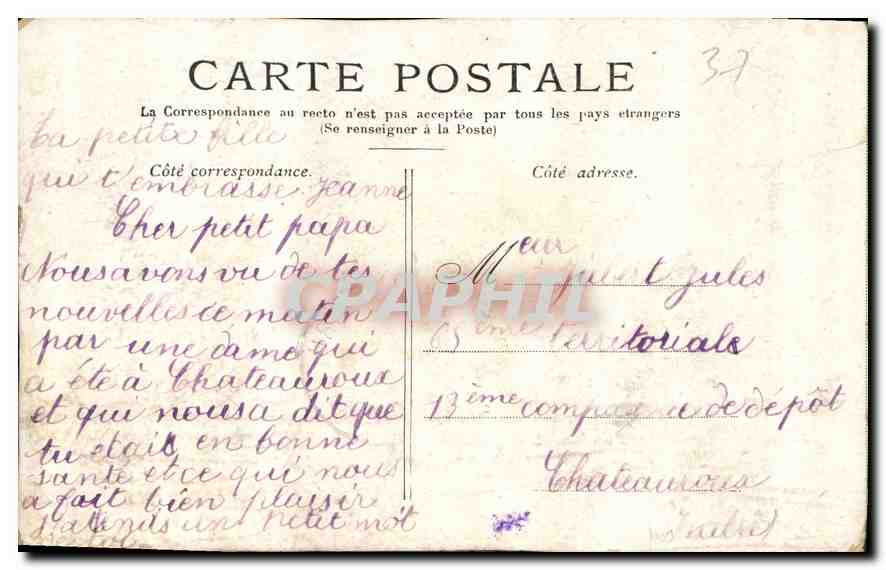 CARTE POSTALE
37
La Correspondance au recto n'est pas acceptée par tous les pays etrangers
(Se renseigner à la Poste)
Côté correspondance.
La petite fille
qui t'embrasse Jeanne
Cher petit papa
Nous avons vu de tes
nouvelles ce matin
par une dame qui
a été à Chateauroux
et qui nous a dit que
tu etais en bonne
sante et ce qui nous
a fait bien plaisir
J'atends un petit mot
Côté adresse.
Meur Jules
65ème Territoriale
13ème compagnie de dépôt
Chateauroux
CPAPHIL